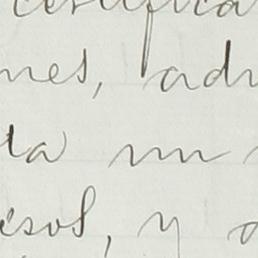 certifica
nes, adu
ta un
ésol, y a